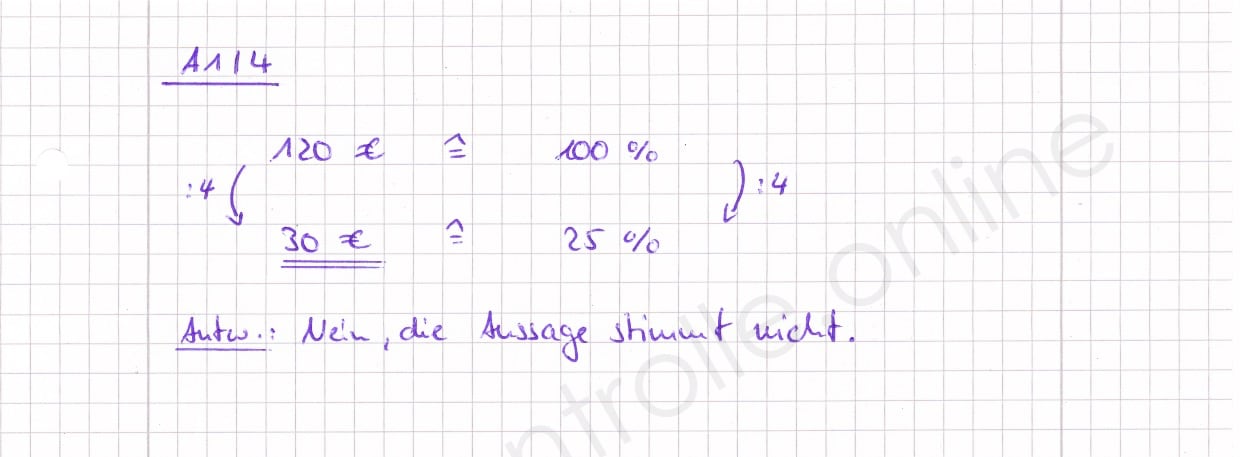 A1/4
120 € ≙ 100 %
:4 :4
30 € ≙ 25 %
Antw.: Nein, die Aussage stimmt nicht.
ntrolle.online